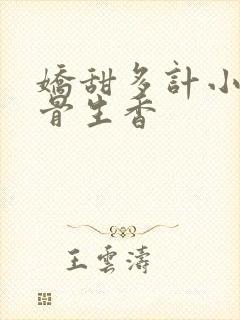 嬌甜多計小
骨生香
王雲濤